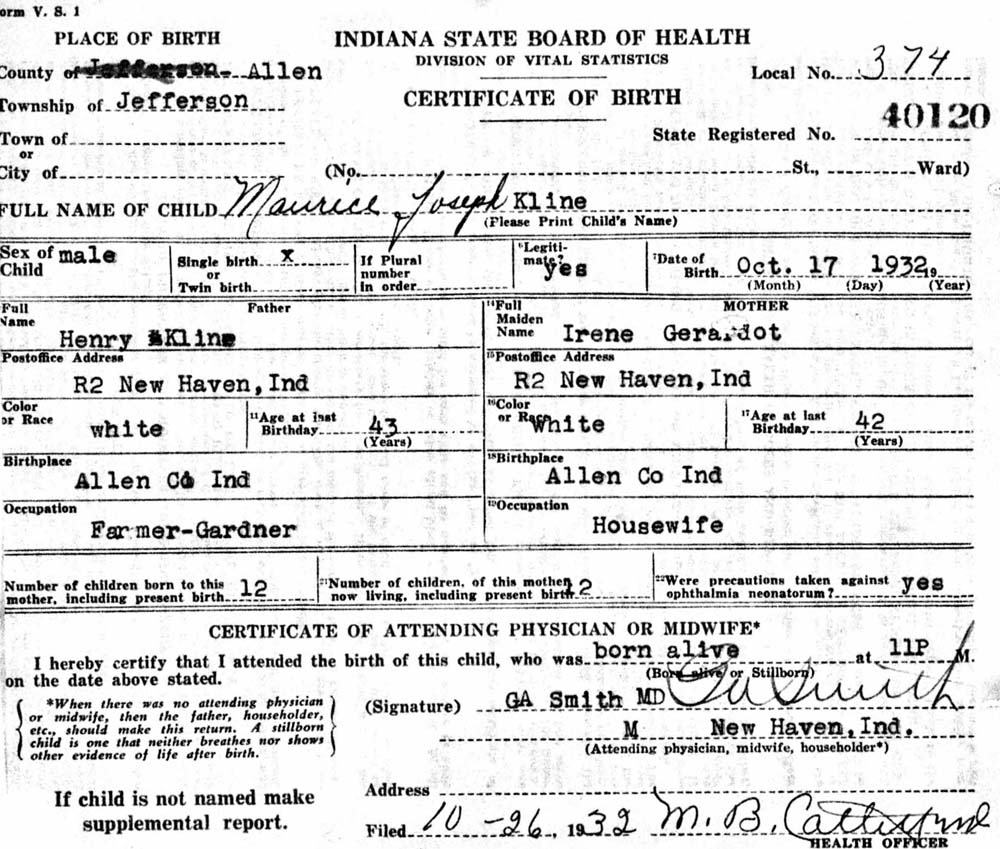 orm V. S. 1
PLACE OF BIRTH
INDIANA STATE BOARD OF HEALTH
DIVISION OF VITAL STATISTICS
County of Jefferson Allen
Local No. 374
Township of Jefferson
CERTIFICATE OF BIRTH
40120
Town of
State Registered No.
or
City of (No. St., Ward)
FULL NAME OF CHILD Maurice Joseph Kline
(Please Print Child's Name)
Sex of Child male
Single birth x
or
Twin birth
If Plural
number
in order
6Legiti-
mate? yes
7Date of
Birth Oct. 17 1932, 9
(Month) (Day) (Year)
Full
Name
Father
Henry Kline
14Full
Maiden
Name
MOTHER
Irene Gerardot
Postoffice Address
R2 New Haven, Ind
15Postoffice Address
R2 New Haven, Ind
Color
or Race white
11Age at last
Birthday 43
(Years)
16Color
or Race white
17Age at last
Birthday 42
(Years)
Birthplace
Allen Co Ind
18Birthplace
Allen Co Ind
Occupation
Farmer-Gardner
19Occupation
Housewife
Number of children born to this
mother, including present birth 12
21Number of children, of this mother
now living, including present birth 12
22Were precautions taken against
ophthalmia neonatorum? yes
CERTIFICATE OF ATTENDING PHYSICIAN OR MIDWIFE*
I hereby certify that I attended the birth of this child, who was born alive at 11P M.
(Born alive or Stillborn)
on the date above stated.
*When there was no attending physician
or midwife, then the father, householder,
etc., should make this return. A stillborn
child is one that neither breathes nor shows
other evidence of life after birth.
(Signature) GA Smith MD GA Smith
M New Haven, Ind.
(Attending physician, midwife, householder*)
If child is not named make
supplemental report.
Address
Filed 10-26, 1932 M. B.
HEALTH OFFICER